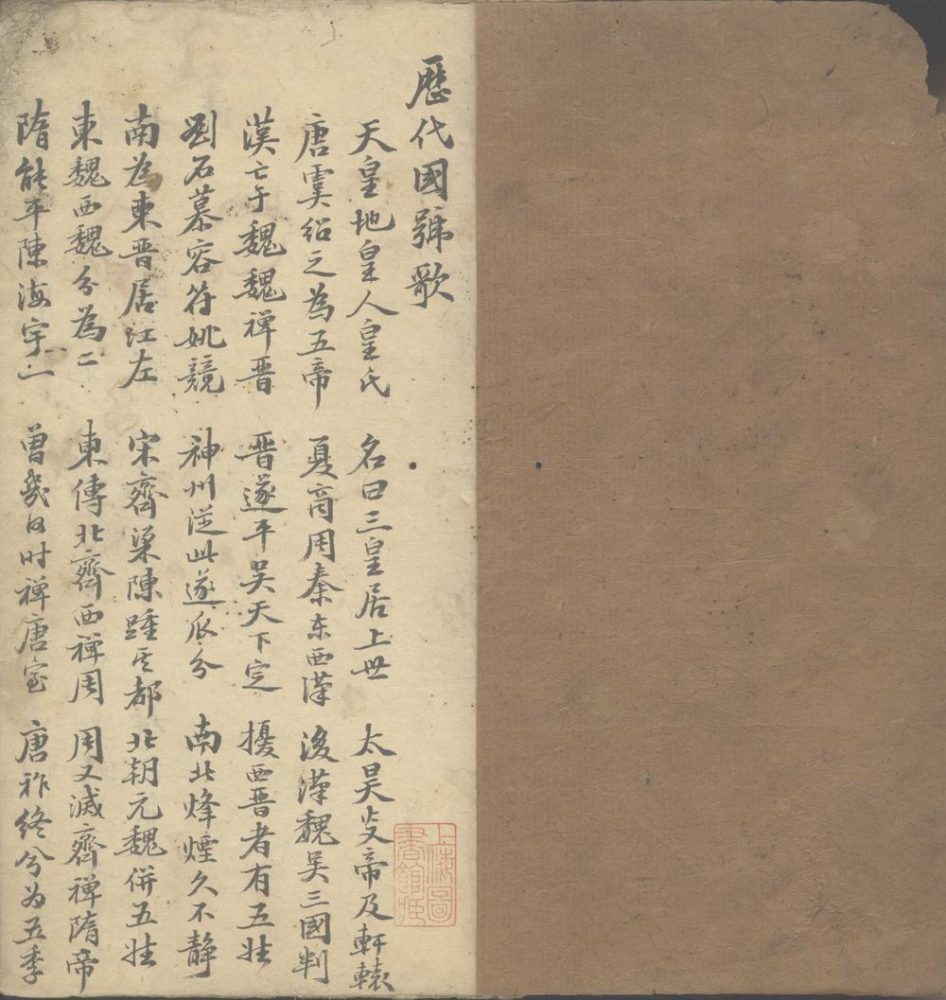 歷代國號歌
天皇地皇人皇氏 名曰三皇居上世 太昊炎帝及軒轅
唐虞紹之為五帝 夏商周秦东西漢 後漢魏吴三國判
漢亡于魏魏禅晋 晋遂平吴天下定 擾西晋者有五姓
劉石慕容符姚競 神州從此遂瓜分 南北烽煙久不静
南為東晋居江左 宋齊梁陳踵其都 北朝元魏併五姓
東魏西魏分為二 東傳北齊西禅周 周又滅齊禅隋帝
隋能平陳海宇一 曾幾何时禅唐室 唐祚终兮为五季
上海圖書館藏